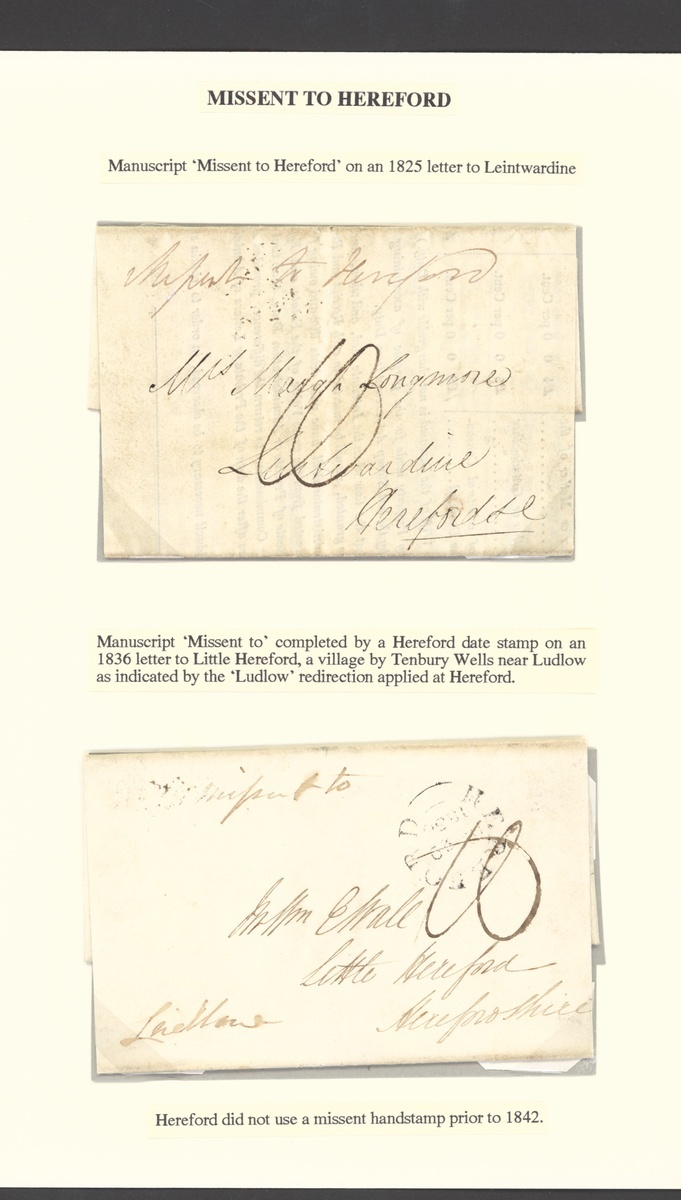 MISSENT TO HEREFORD
Manuscript ‘Missent to Hereford’ on an 1825 letter to Leintwardine
Missent to Hereford
10
Longmore
Leintwardine
Manuscript ‘Missent to’ completed by a Hereford date stamp on an
1836 letter to Little Hereford, a village by Tenbury Wells near Ludlow
as indicated by the ‘Ludlow’ redirection applied at Hereford.
missent to
10
Little Hereford
Herefordshire
Ludlow
Hereford did not use a missent handstamp prior to 1842.